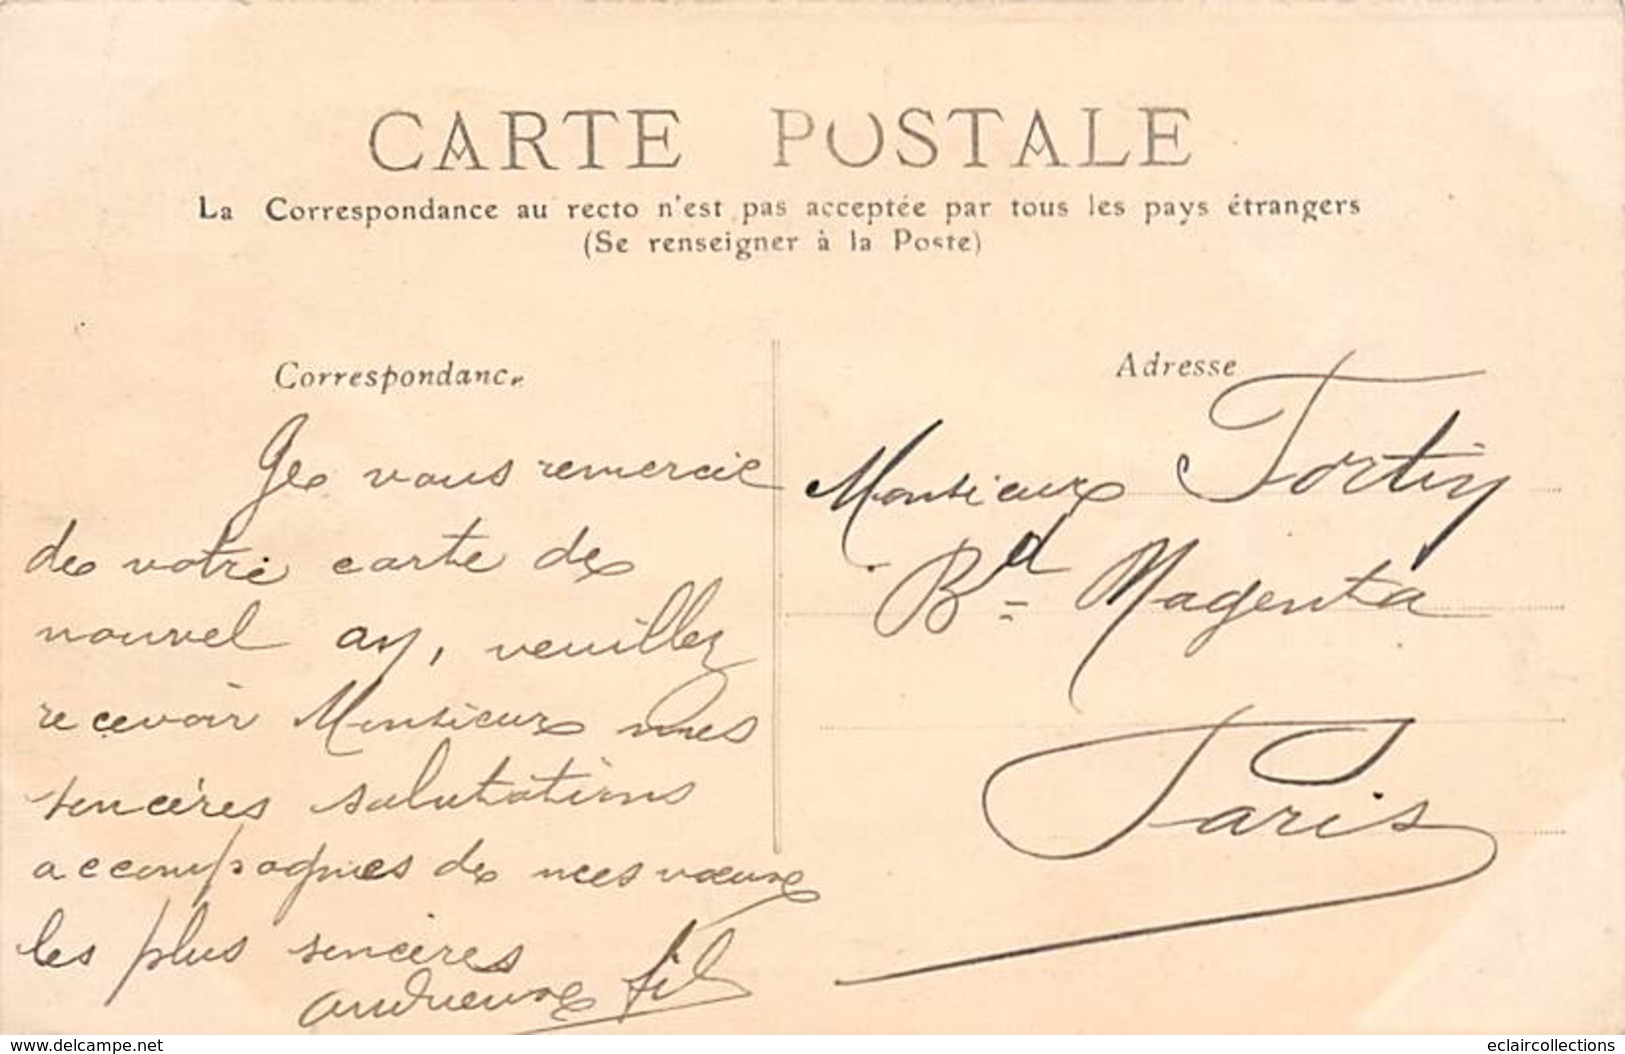 CARTE POSTALE
La Correspondance au recto n'est pas acceptée par tous les pays étrangers
(Se renseigner à la Poste)
Correspondance
Je vous remercie
de votre carte de
nouvel an, veuillez
recevoir Monsieur mes
sincères salutations
accompagnées de mes vœux
les plus sincères
Andrieux fils
Adresse
Monsieur Fortin
Bd Magenta
Paris
www.delcampe.net
eclaircollections